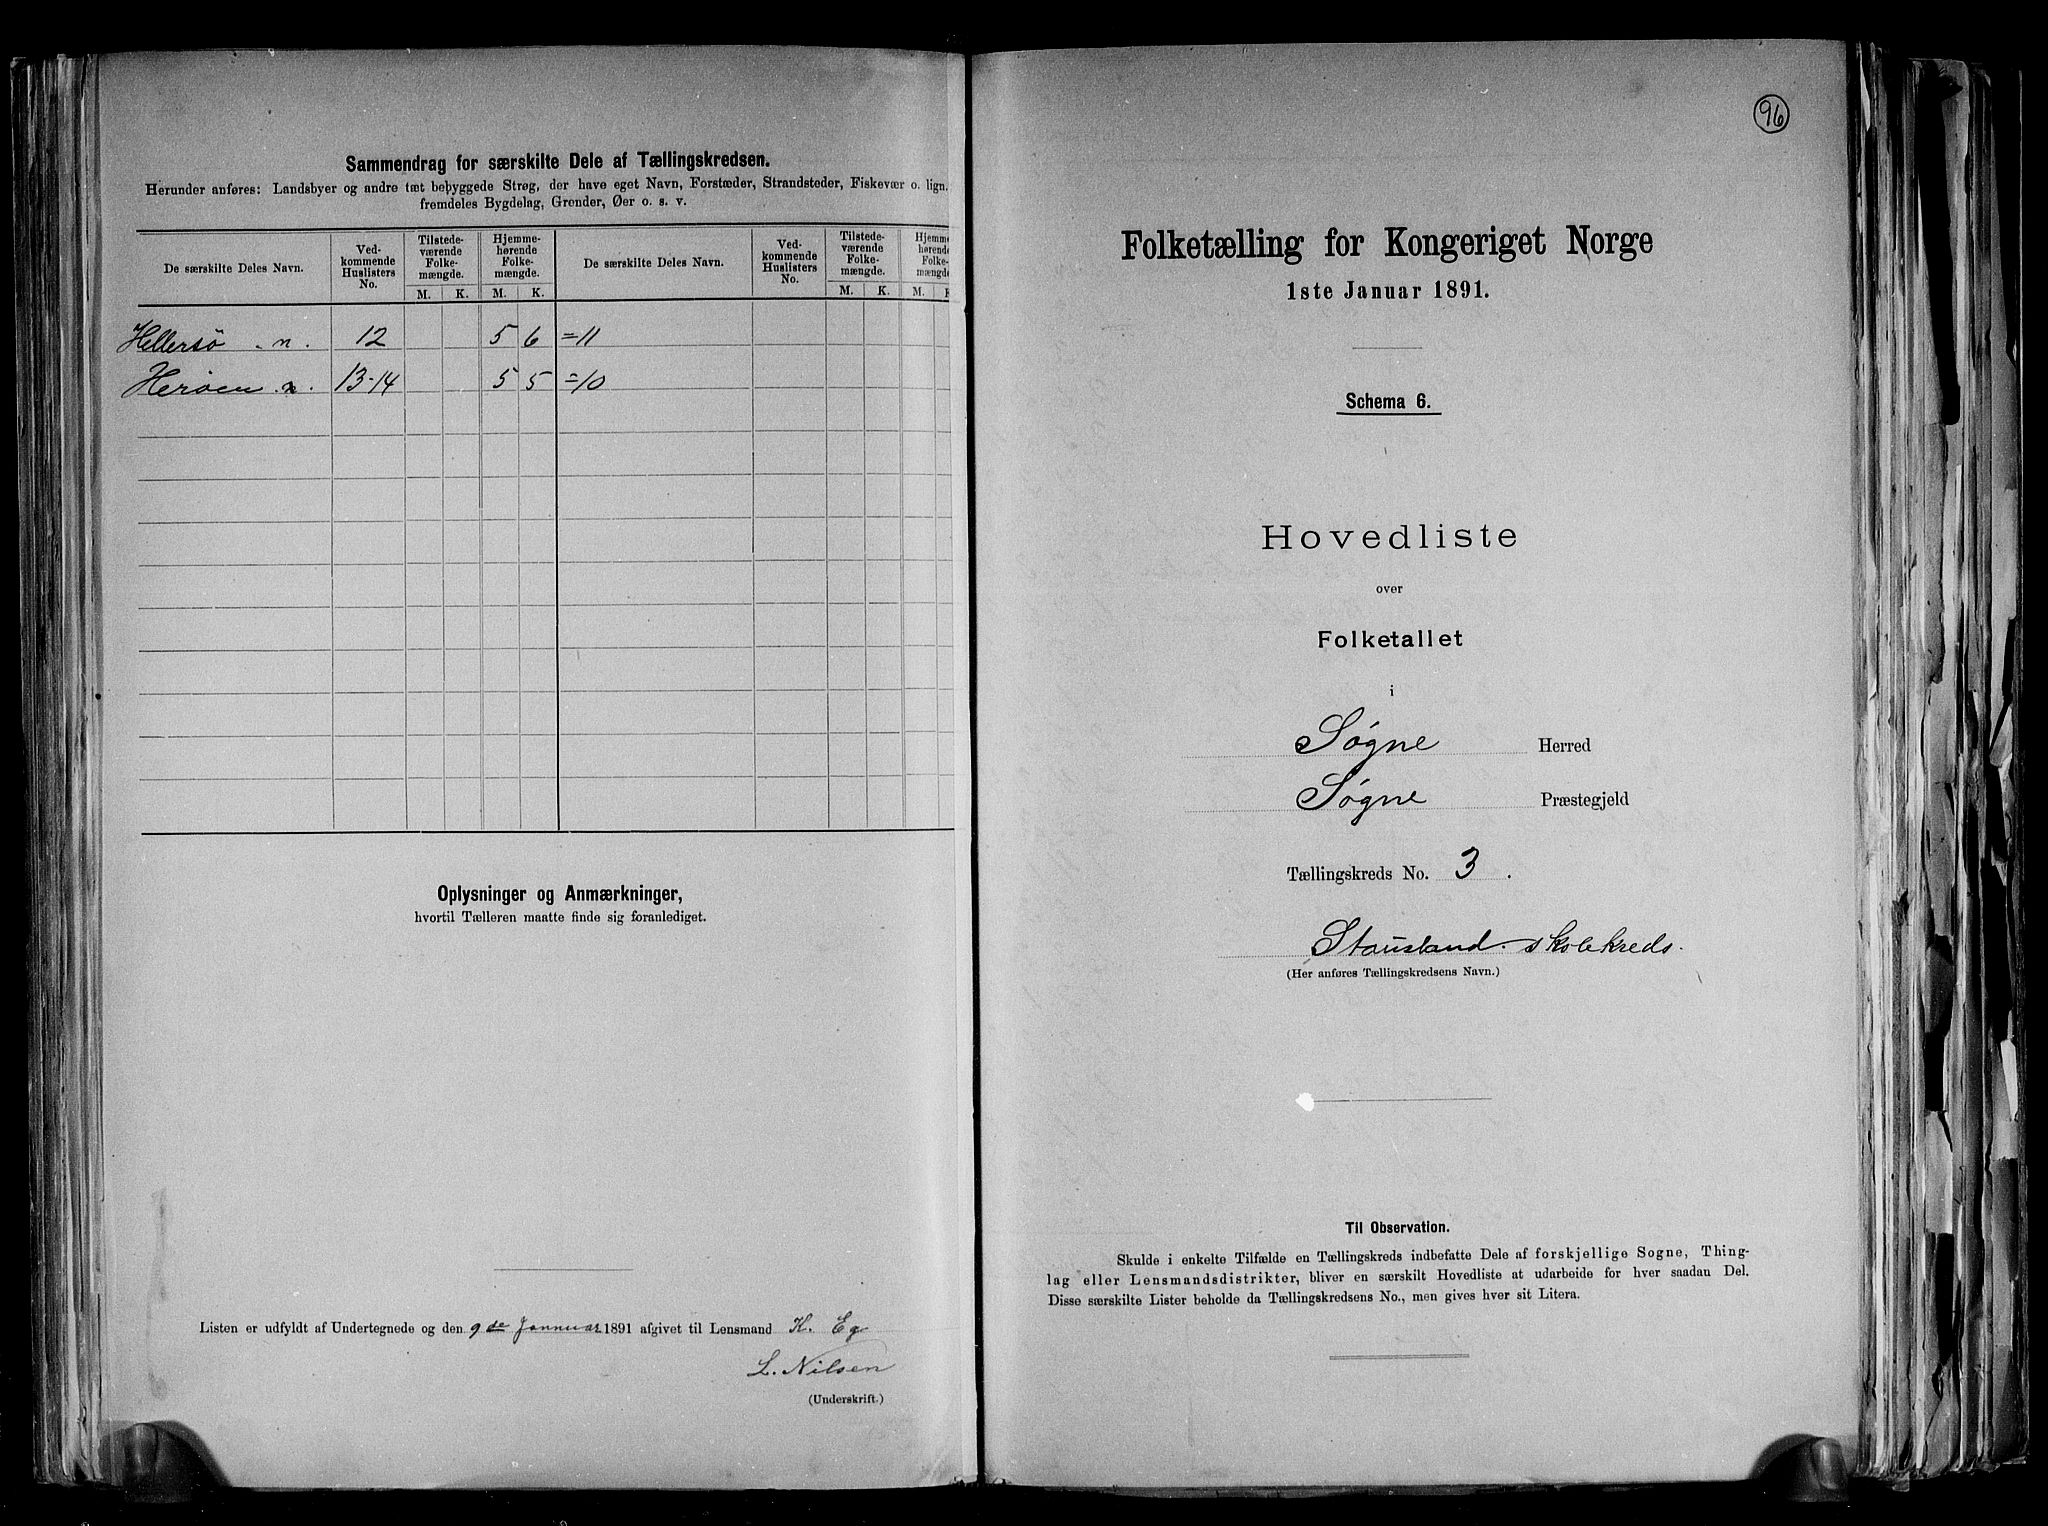 Sammendrag for særskilte Dele af Tællingskredsen.
Herunder anføres: Landsbyer og andre tæt bebyggede Strøg, der have eget Navn, Forstæder, Strandsteder, Fiskevær o. lign.
fremdeles Bygdelag, Grender, Øer o. s. v.
De særskilte Deles Navn. Ved-kommende Huslisters No. Tilstede-værende Folke-mængde. Hjemme-hørende Folke-mængde. De særskilte Deles Navn. Ved-kommende Huslisters No. Tilstede-værende Folke-mængde. Hjemme-hørende Folke-mængde.
M. K. M. K. M. K. M. K
Hellersø . n. 12 5 6 =11
Herøen n. 13-14 5 5 =10
Oplysninger og Anmærkninger,
hvortil Tælleren maatte finde sig foranlediget.
Listen er udfyldt af Undertegnede og den 9de Jannuar 1891 afgivet til Lensmand K. Eg
L. Nilsen
(Underskrift.)
96
Folketælling for Kongeriget Norge
1ste Januar 1891.
Schema 6.
Hovedliste
over
Folketallet
i
Søgne Herred
Søgne Præstegjeld
Tællingskreds No. 3 .
Stausland skolekreds.
(Her anføres Tællingskredsens Navn.)
Til Observation.
Skulde i enkelte Tilfælde en Tællingskreds indbefatte Dele af forskjellige Sogne, Thing-
lag eller Lensmandsdistrikter, bliver en særskilt Hovedliste at udarbeide for hver saadan Del.
Disse særskilte Lister beholde da Tællingskredsens No., men gives hver sit Litera.